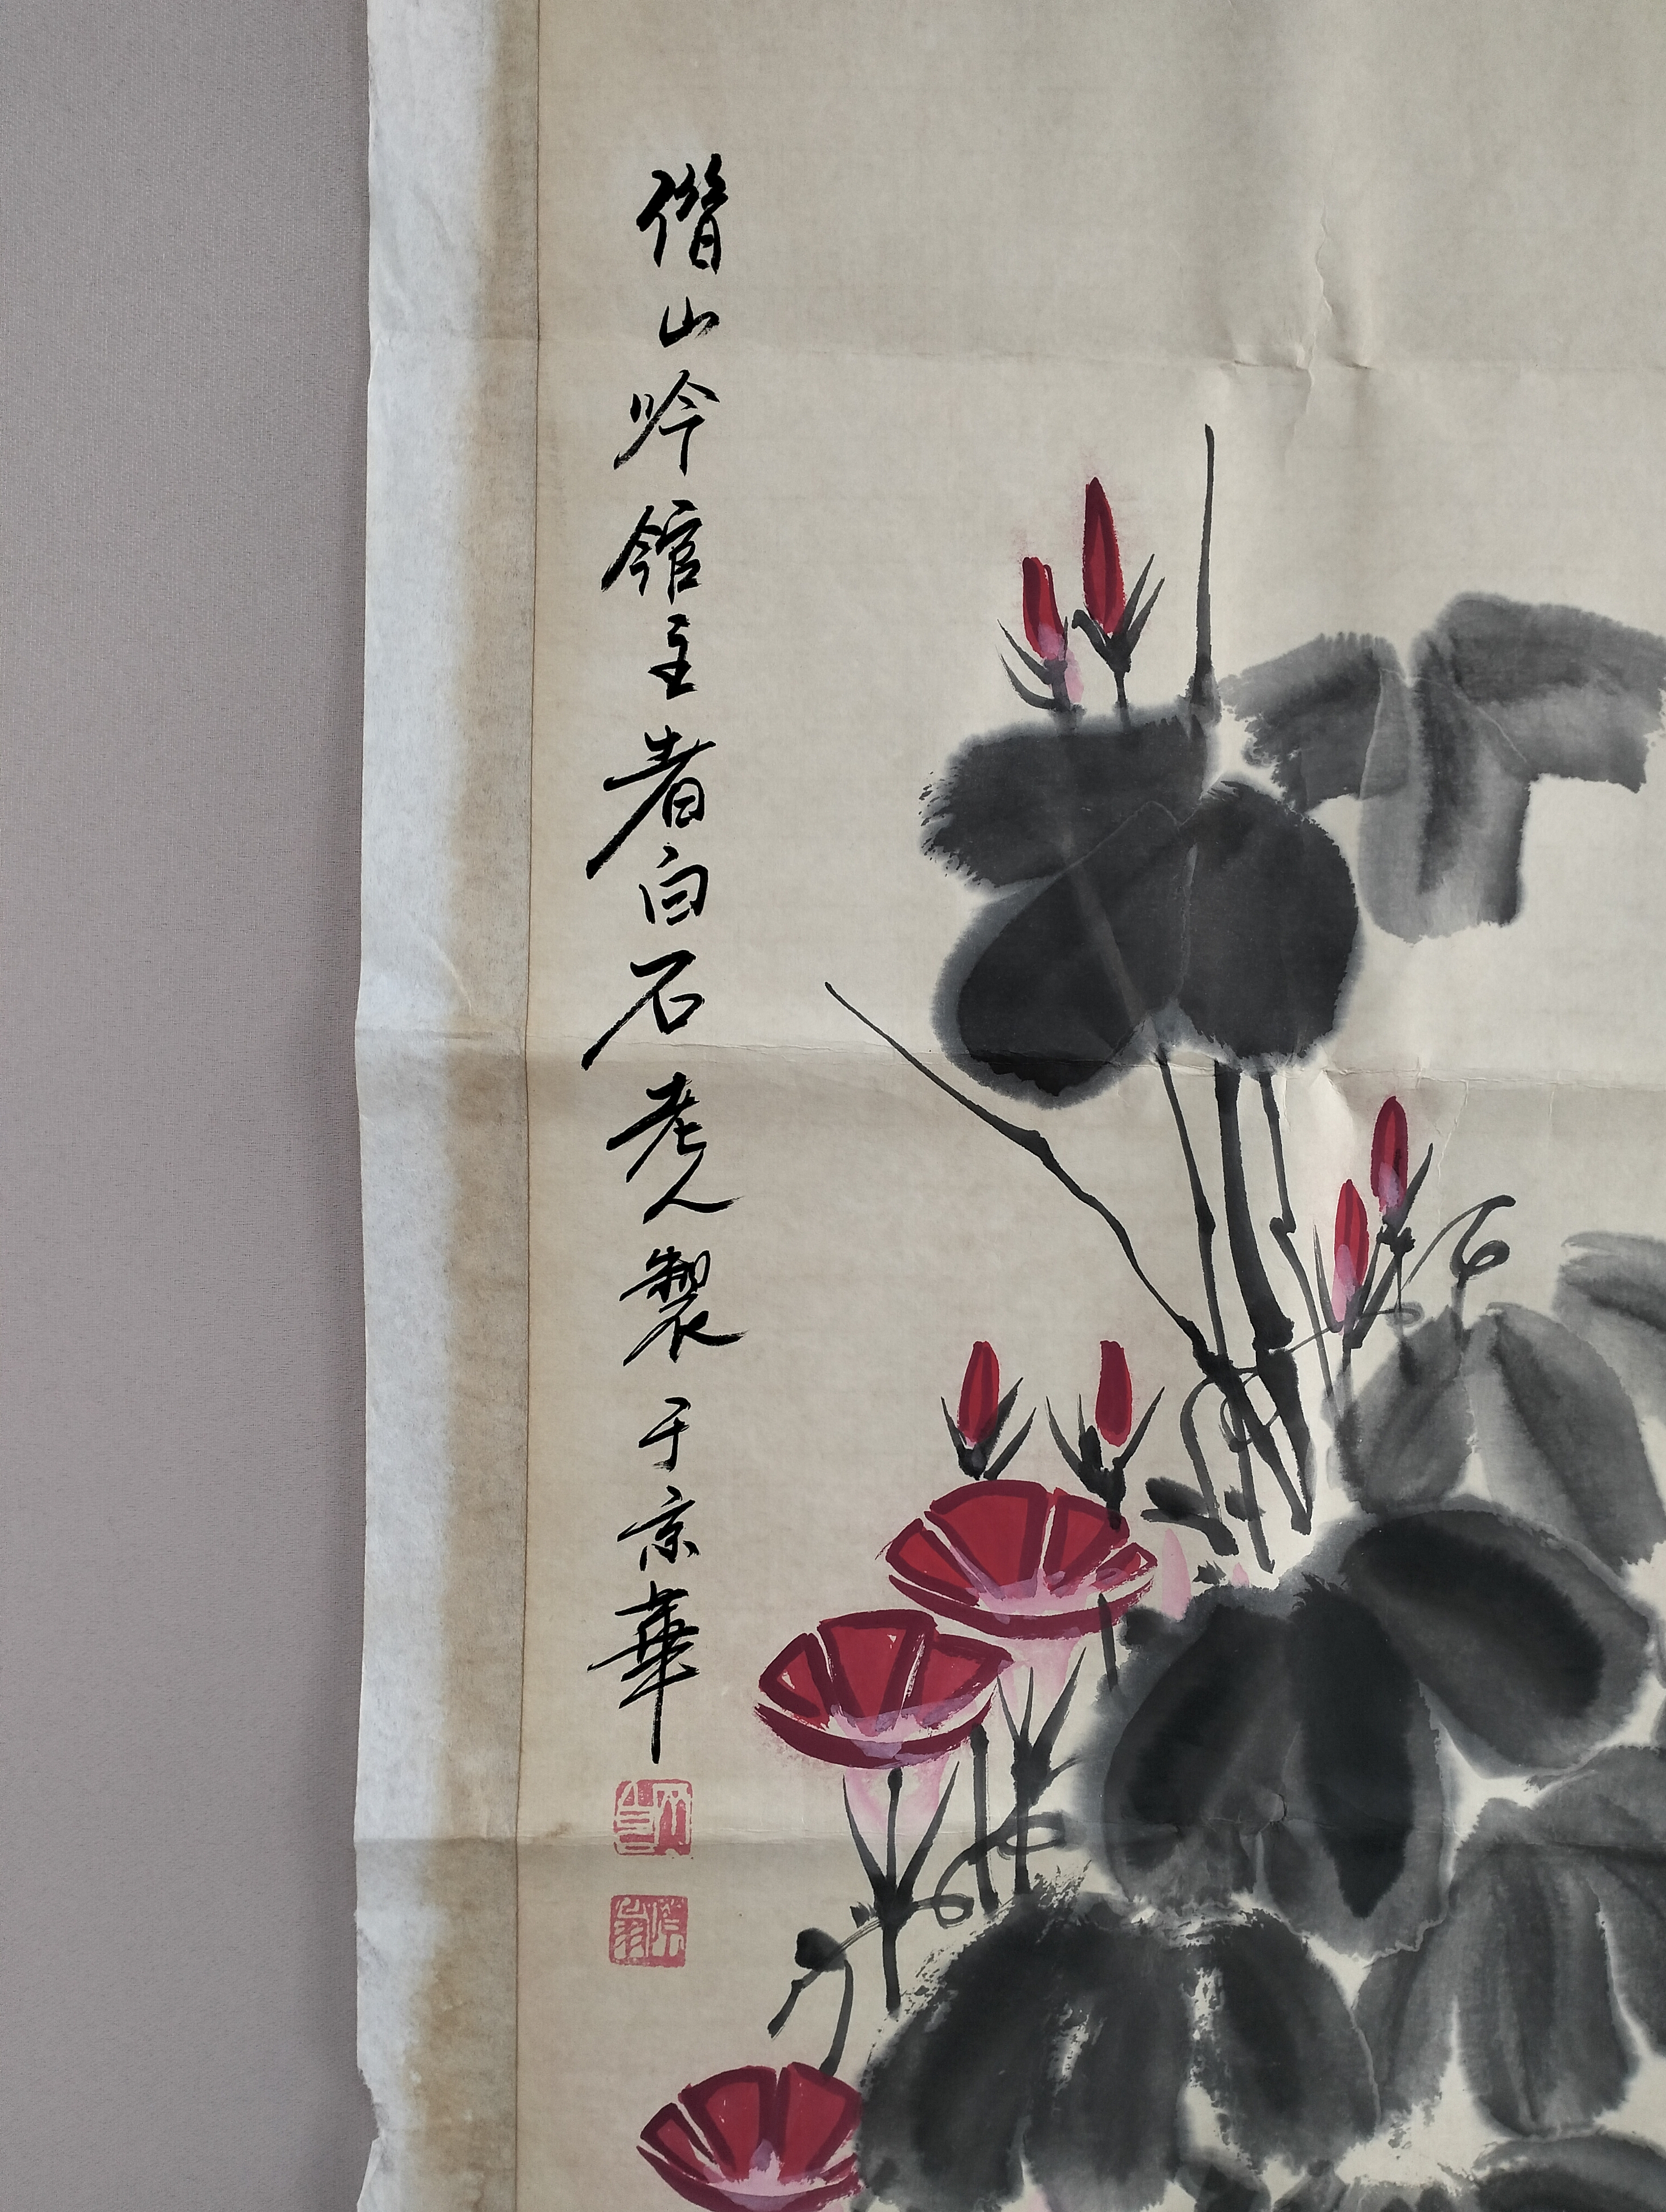 借山吟馆主者白石老人製于京華